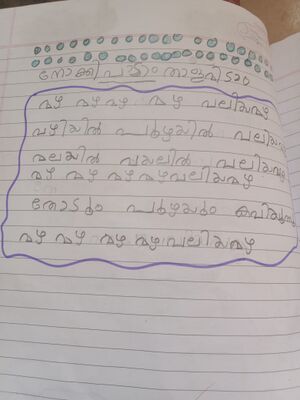 നോക്കി താളമിടാം
മഴ മഴ മഴ മഴ വലിയമഴ
വഴിയിൽ പുഴയിൽ വലിയമഴ
മലയിൽ വയലിൽ വലിയമഴ
മഴ മഴ മഴ മഴ വലിയമഴ
തോടും പുഴയും
മഴ മഴ മഴ മഴ വലിയമഴ